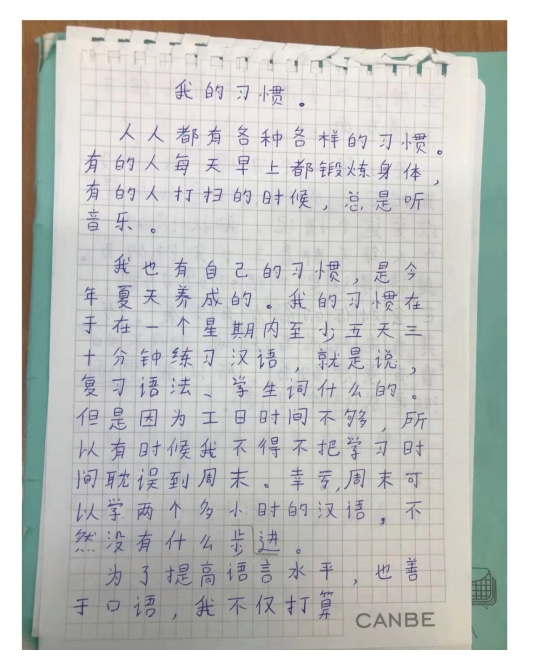 我的习惯。
人人都有各种各样的习惯。
有的人每天早上都锻炼身体，
有的人打扫的时候，总是听
音乐。
我也有自己的习惯，是今
年夏天养成的。我的习惯在
于在一个星期内至少五天三
十分钟练习汉语，就是说，
复习语法、学生词什么的。
但是因为工日时间不够，所
以有时候我不得不把学习时
间耽误到周末。幸亏，周末可
以学两个多小时的汉语，不
然没有什么步进。
为了提高语言水平，也善
于口语，我不仅打算
CANBE